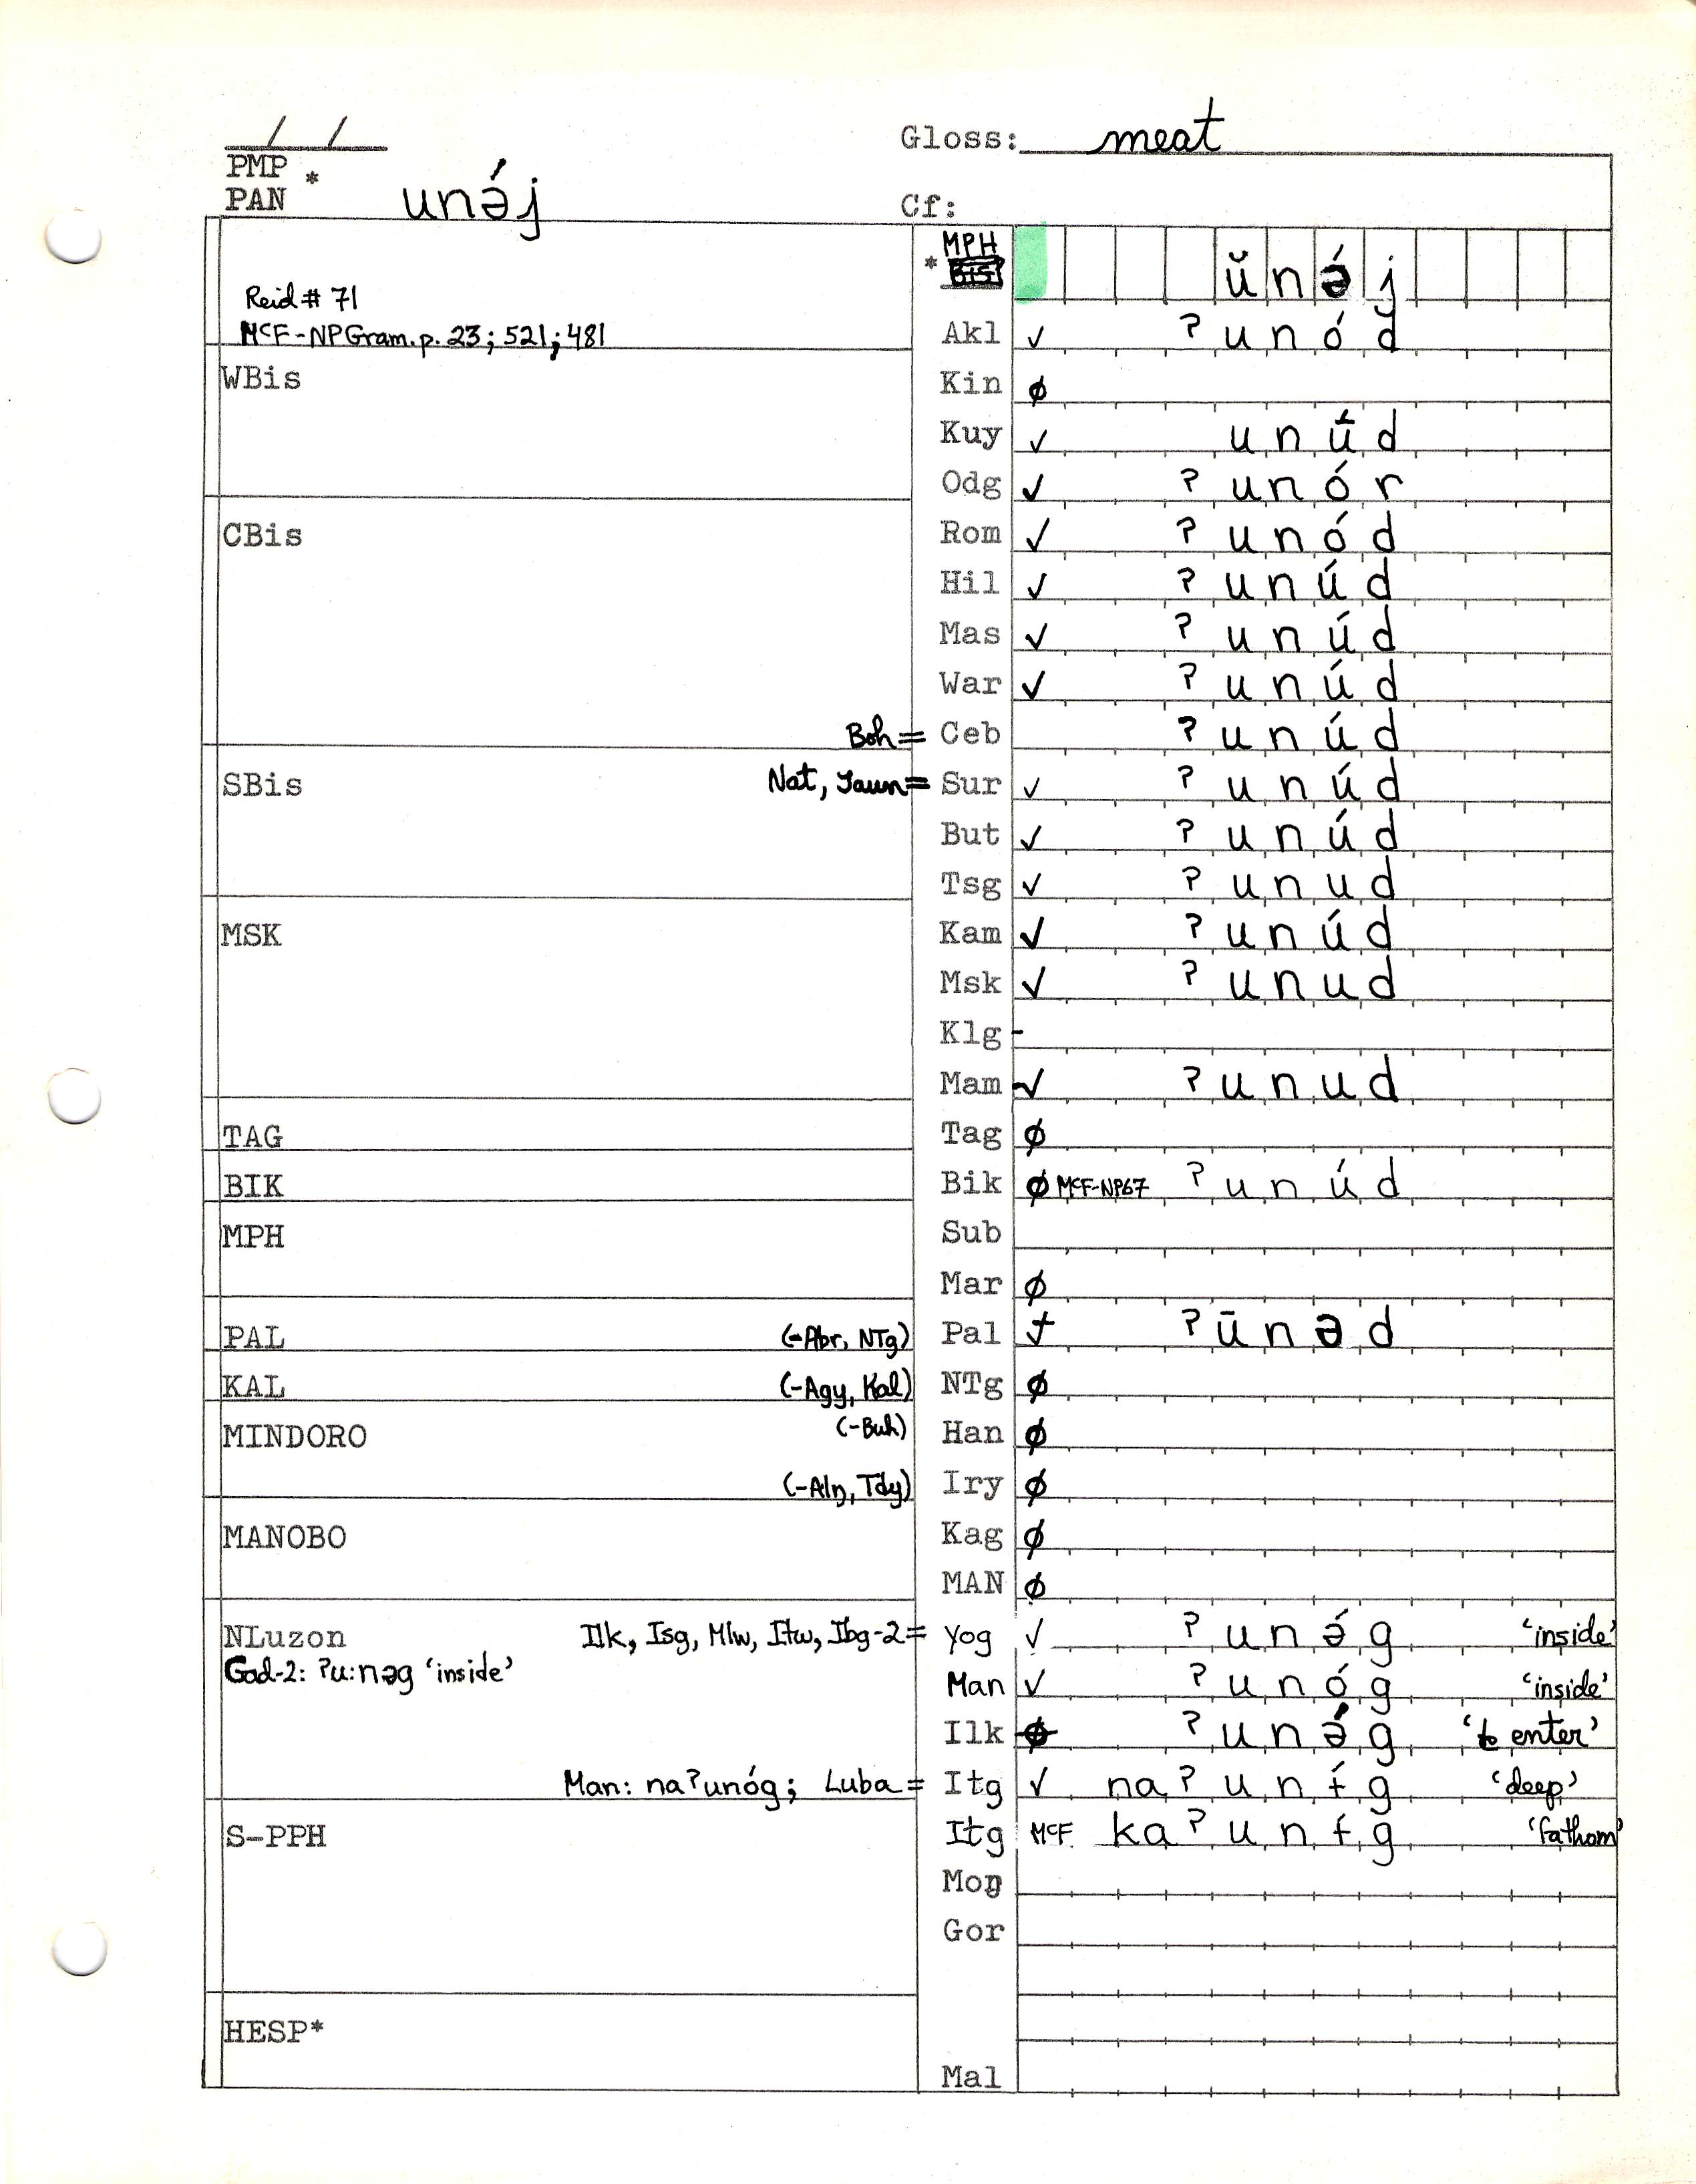 / /
Gloss: meat
PMP *
PAN unə́j
Cf:
* MPH ŭnə́j
Reid # 71
McF-NPGram. p. 23; 521; 481
Akl ✓ ʔunód
WBis
Kin ∅
Kuy ✓ unʉ́d
Odg ✓ ʔunór
CBis
Rom ✓ ʔunód
Hil ✓ ʔunúd
Mas ✓ ʔunúd
War ✓ ʔunúd
Boh = Ceb ʔunúd
SBis Nat, Jaun = Sur ✓ ʔunúd
But ✓ ʔunúd
Tsg ✓ ʔunud
MSK Kam ✓ ʔunúd
Msk ✓ ʔunud
Klg -
Mam ✓ ʔunud
TAG Tag ∅
BIK Bik ∅ McF-NP67 ʔunúd
MPH Sub
Mar ∅
PAL (-Abr, NTg) Pal ʔūnəd
KAL (-Agy, Kal) NTg ∅
MINDORO (-Buh) Han ∅
(-Alŋ, Tdy) Iry ∅
MANOBO Kag ∅
MAN ∅
NLuzon Ilk, Isg, Mlw, Itw, Ibg-2 = Yog ✓ ʔunə́g 'inside'
Gad-2: ʔu:nəg 'inside'
Man ✓ ʔunóg 'inside'
Ilk ∅ ʔunə́g 'to enter'
Man: naʔunóg; Luba = Itg ✓ naʔunɨ́g 'deep'
S-PPH Itg McF. kaʔunɨ́g 'fathom'
Moŋ
Gor
HESP*
Mal